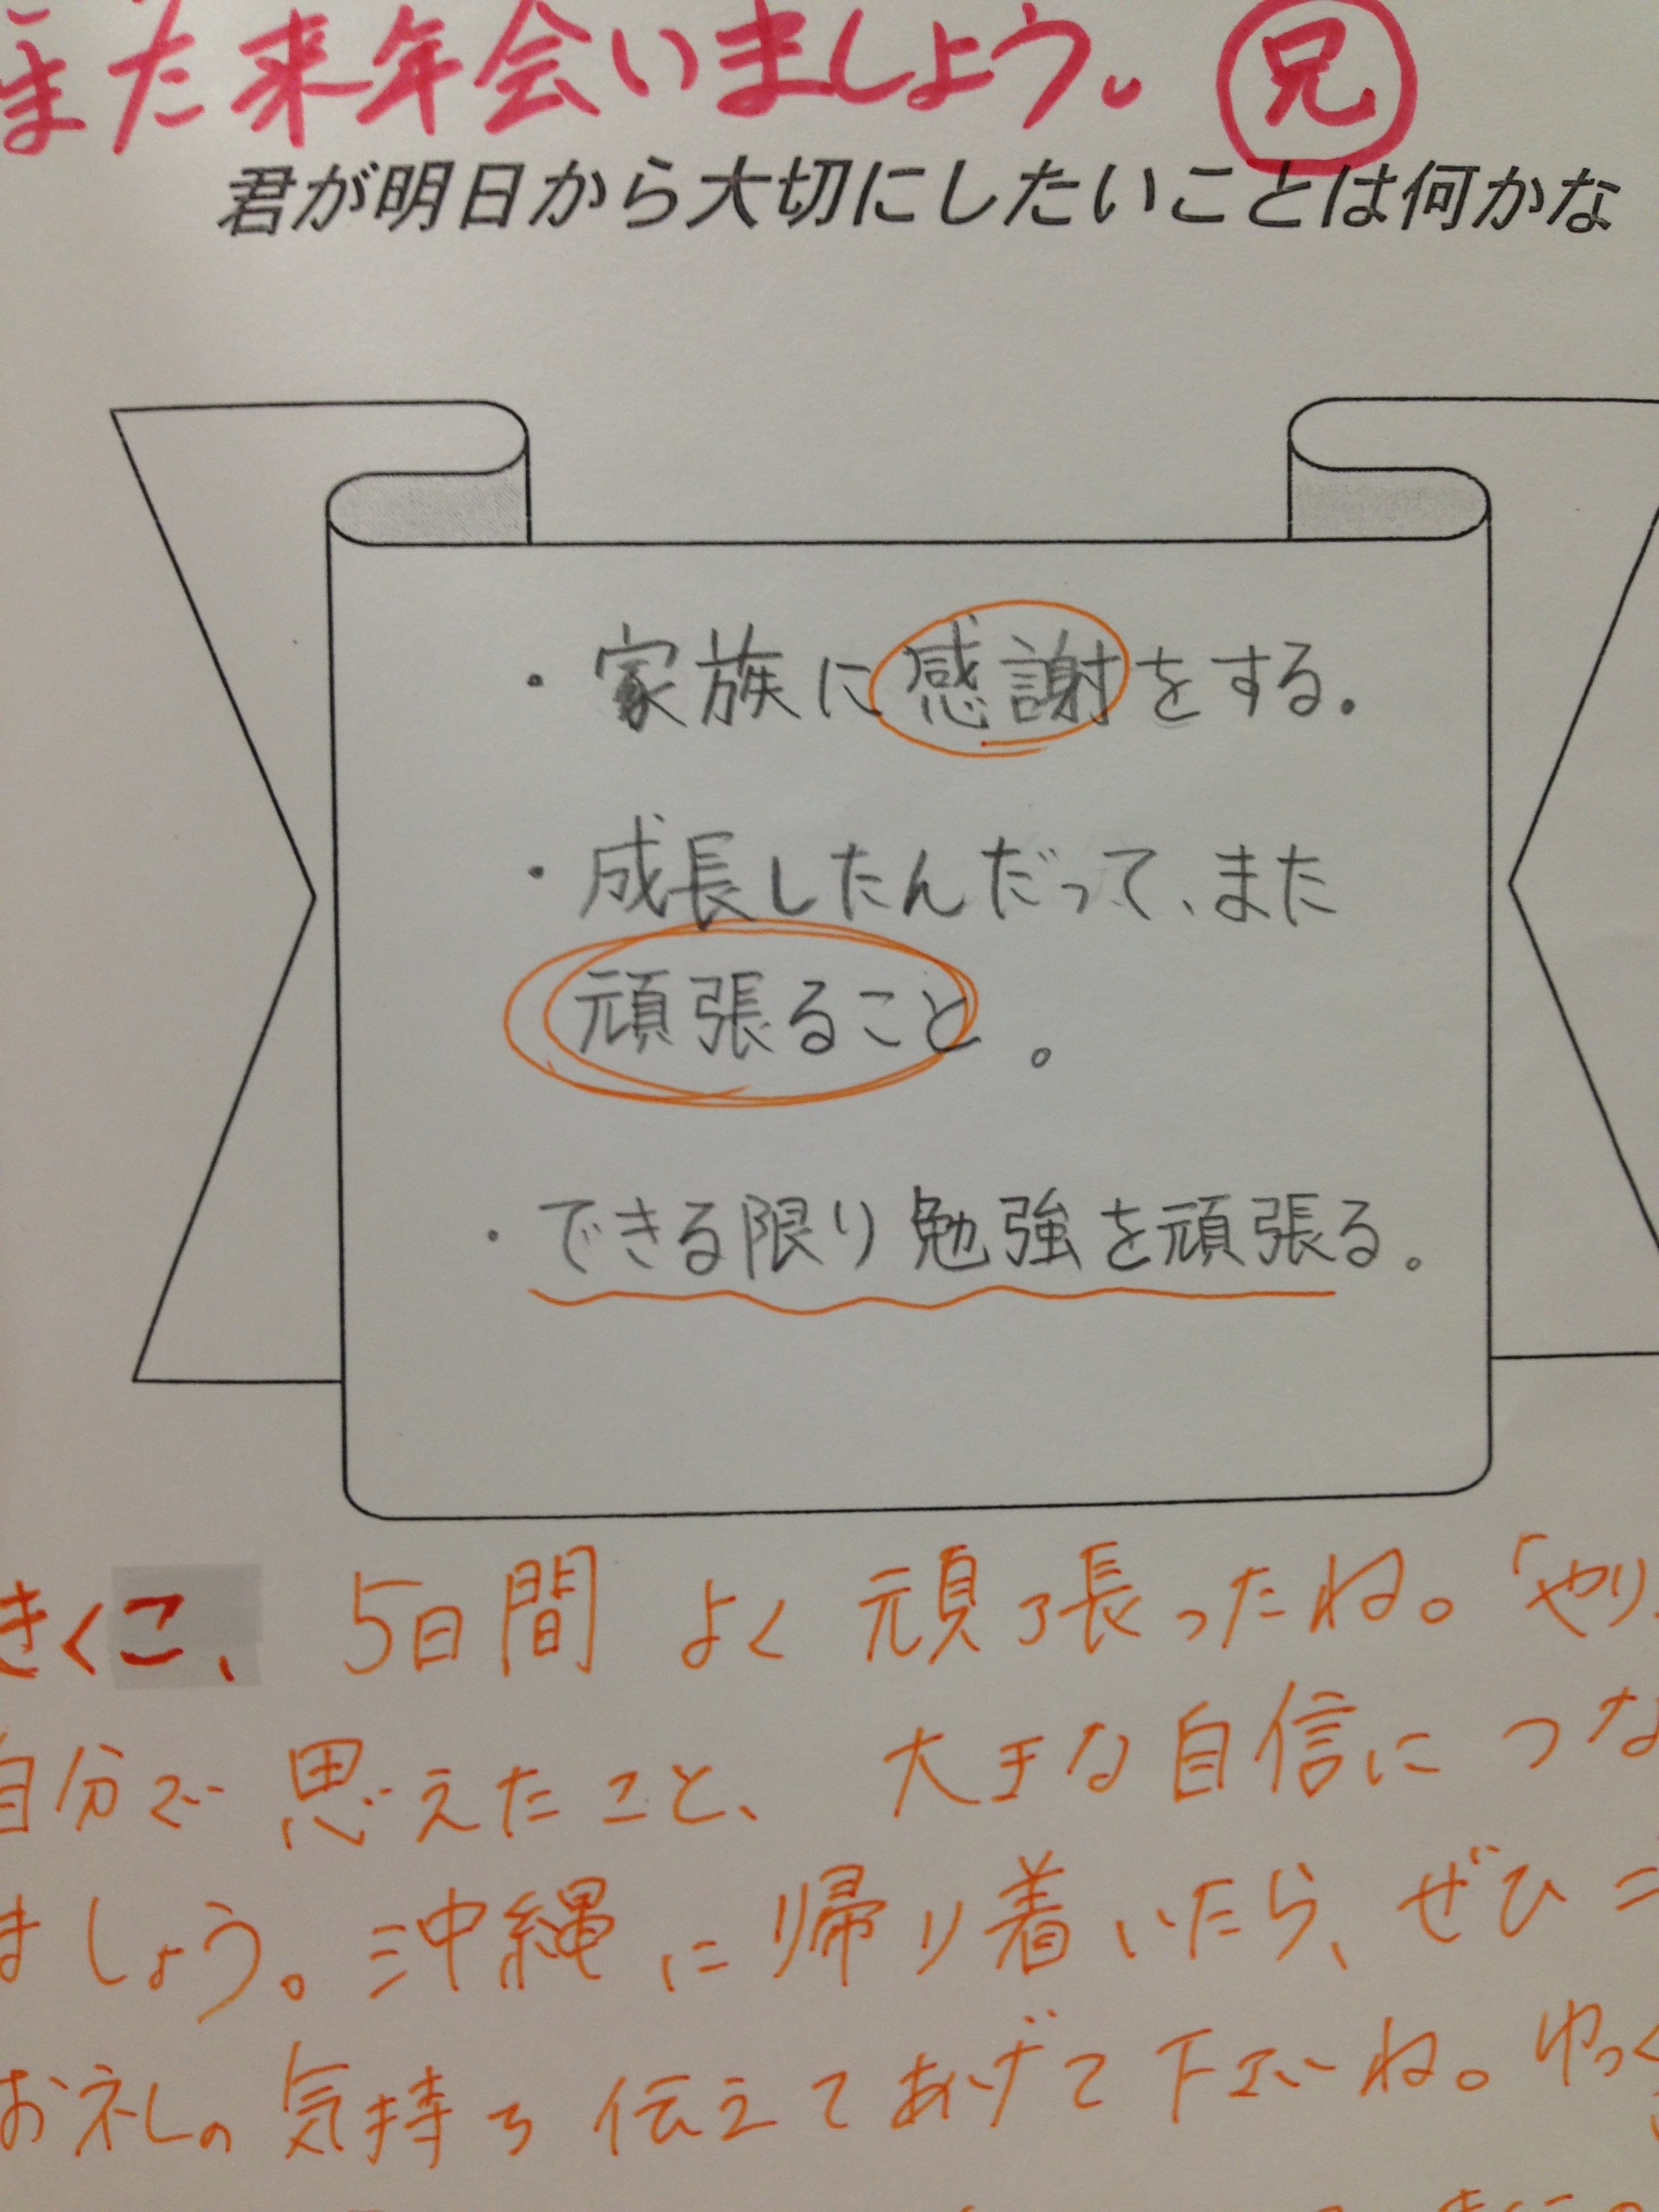 また来年会いましょう。 兄
君が明日から大切にしたいことは何かな
・家族に感謝をする。
・成長したんだって、また
頑張ること。
・できる限り勉強を頑張る。
きくこ、5日間 よく頑張ったね。「やり
自分で思えたこと、大きな自信につな
ましょう。沖縄に帰り着いたら、ぜひ
お礼の気持ち伝えてあげて下さいね。ゆっく